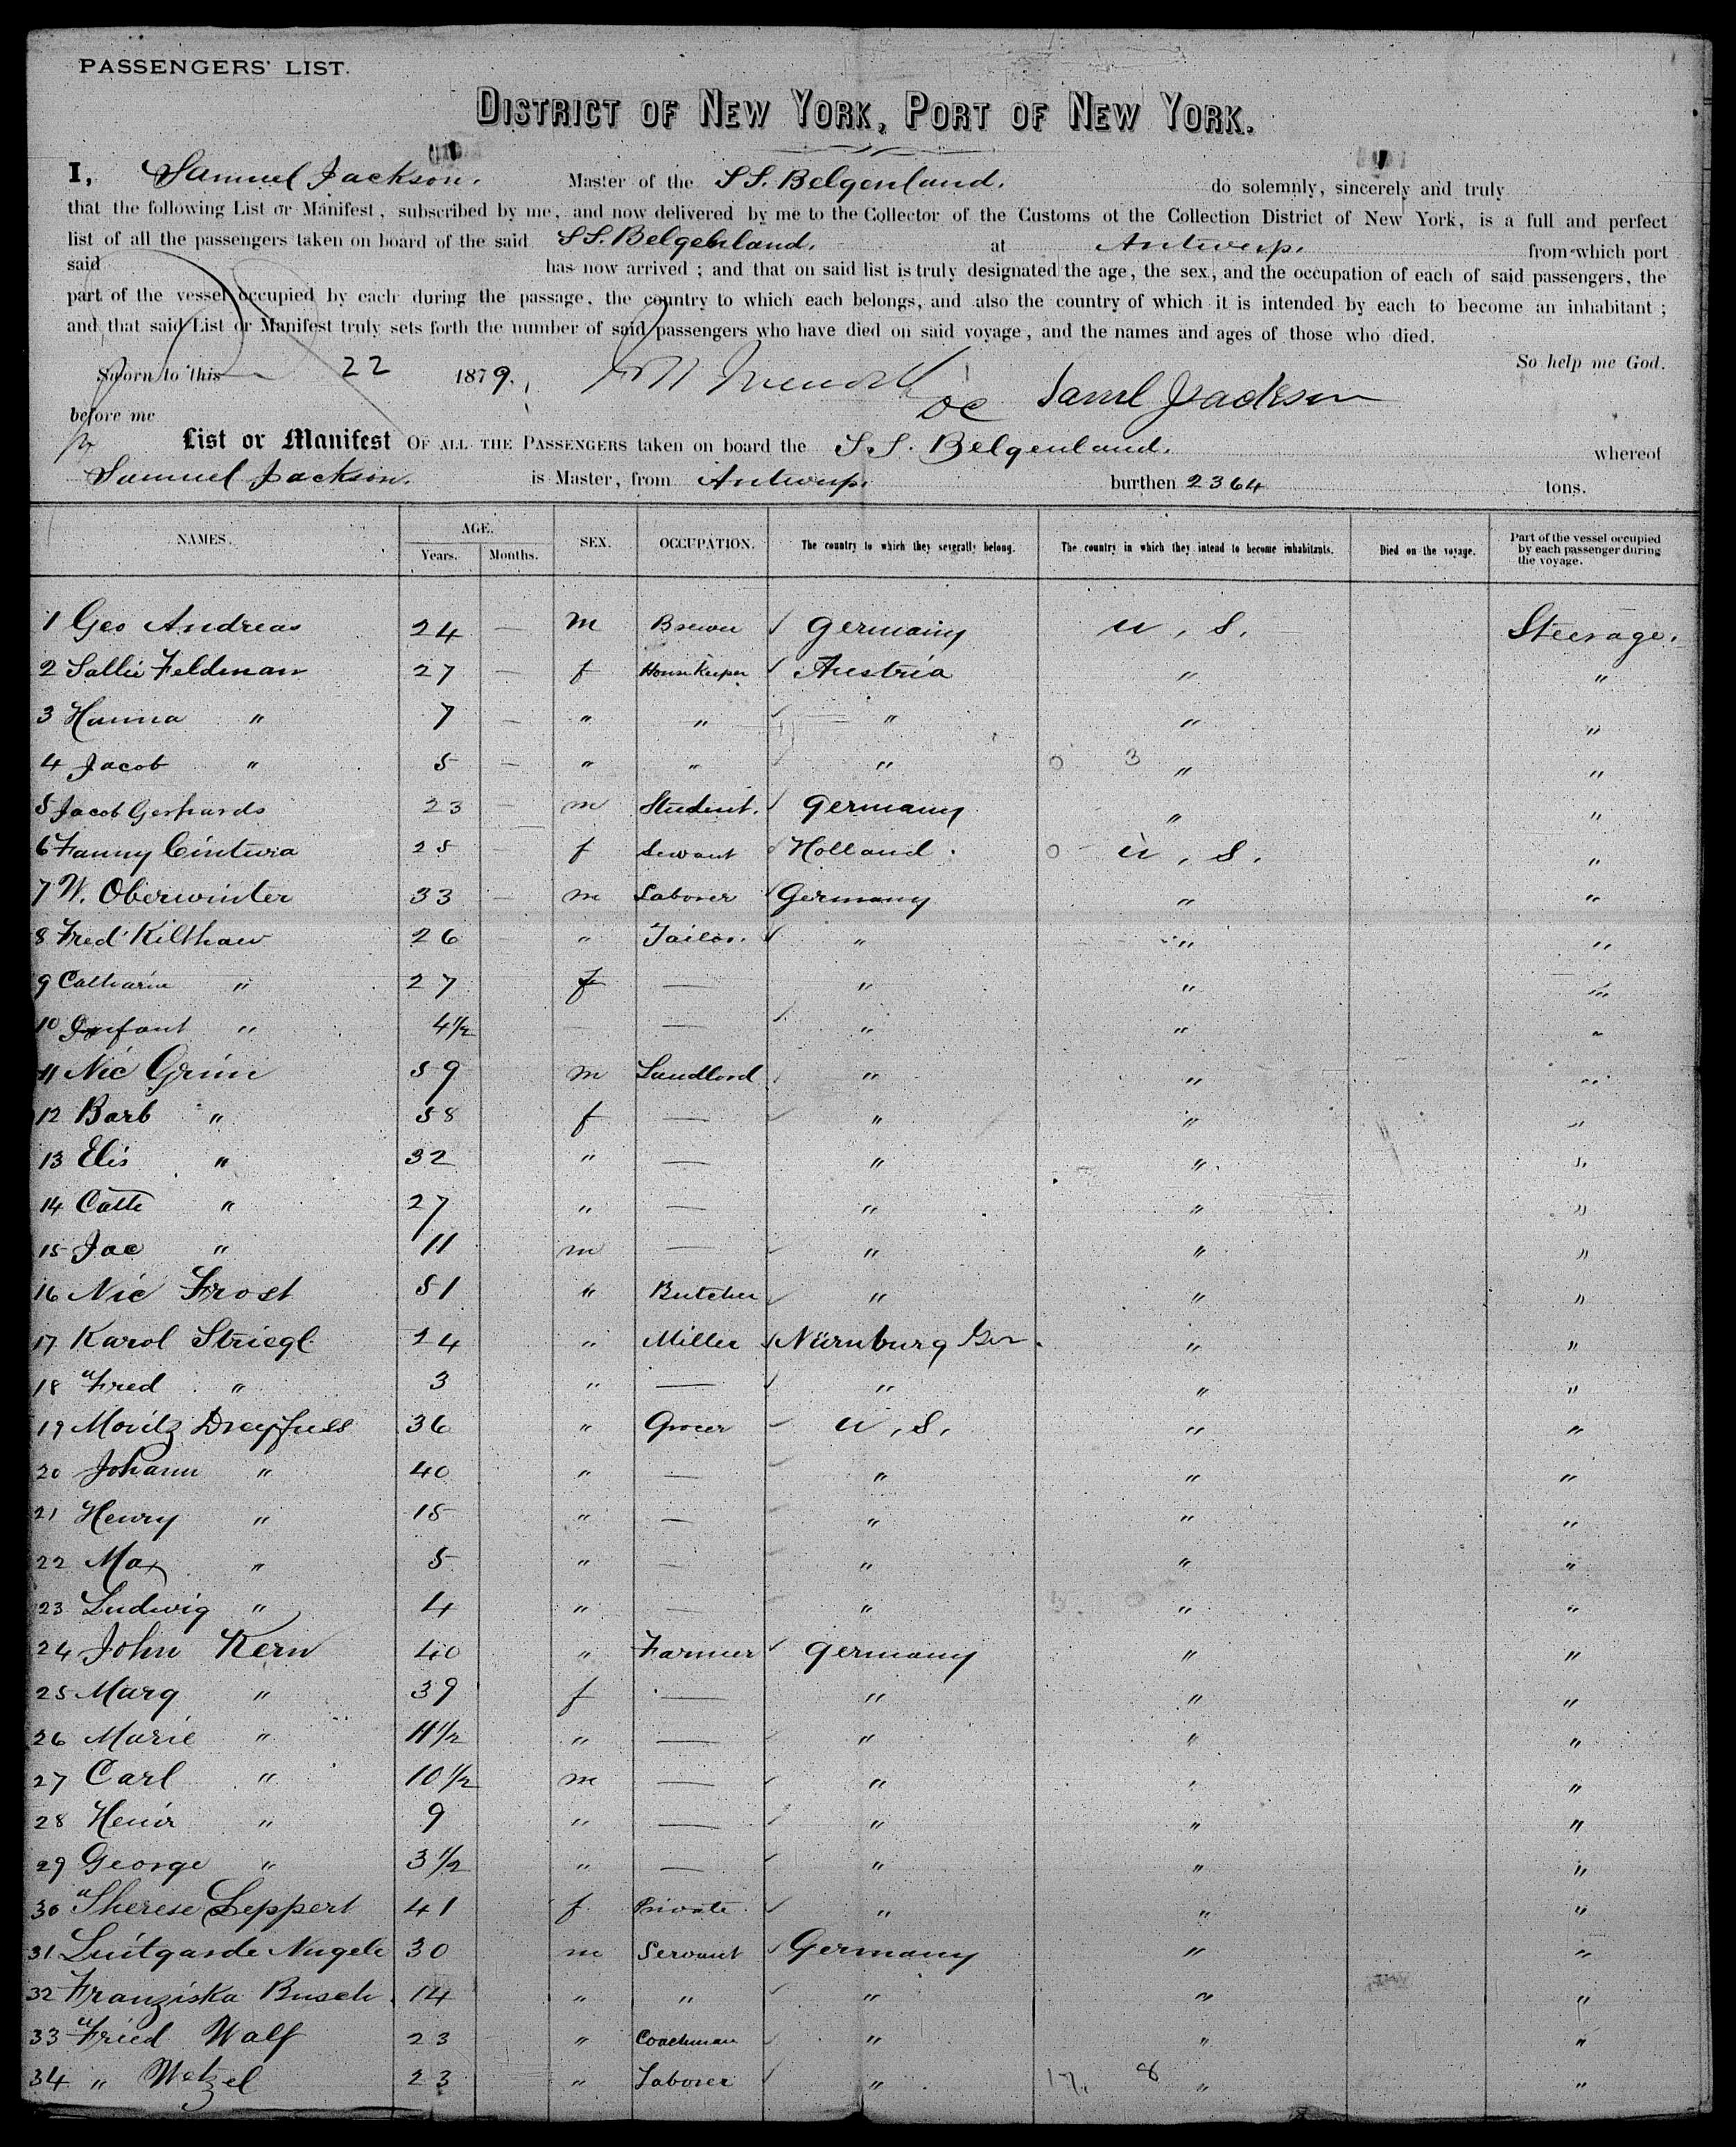 PASSENGERS' LIST.
DISTRICT OF NEW YORK, PORT OF NEW YORK.
I, Samuel Jackson. Master of the SS. Belgenland. do solemnly, sincerely and truly
that the following List or Manifest, subscribed by me, and now delivered by me to the Collector of the Customs of the Collection District of New York, is a full and perfect
list of all the passengers taken on board of the said SS. Belgenland. at Antwerp. from which port
said has now arrived; and that on said list is truly designated the age, the sex, and the occupation of each of said passengers, the
part of the vessel occupied by each during the passage, the country to which each belongs, and also the country of which it is intended by each to become an inhabitant;
and that said List or Manifest truly sets forth the number of said passengers who have died on said voyage, and the names and ages of those who died.
So help me God.
Sworn to this 22 1879. Saml Jackson
before me
List or Manifest OF ALL THE PASSENGERS taken on board the S.S. Belgenland. whereof
Samuel Jackson. is Master, from Antwerp. burthen 2364 tons.
NAMES. AGE. Years. Months. SEX. OCCUPATION. The country to which they severally belong. The country in which they intend to become inhabitants. Died on the voyage. Part of the vessel occupied by each passenger during the voyage.
1 Geo Andreas 24 — m Brewer Germany U, S. Steerage.
2 Sallie Feldman 27 — f HouseKeeper Austria " "
3 Hanna " 7 — " " " " "
4 Jacob " 5 — " " " 0 3 " "
5 Jacob Gerhards 23 — m Student. Germany " "
6 Fanny 25 — f Servant Holland. 0 U, S. "
7 W. Oberwinter 33 — m Laborer Germany " "
8 Fred Kilthaw 26 " Tailor. " " "
9 Catharin " 27 f — " " "
10 Infant " 4½ — " " "
11 Nic Grim 59 m Landlord " " "
12 Barb " 58 f — " " "
13 Elis " 32 " — " " "
14 Cath " 27 " — " " "
15 Jac " 11 m — " " "
16 Nic Frost 51 " Butcher " " "
17 Karol Striegl 24 " Miller Nürnburg Ger. " "
18 Fred " 3 " — " " "
19 Moritz Dreyfuss 36 " Grocer U, S, " "
20 Johann " 40 " — " " "
21 Henry " 15 " — " " "
22 Max " 5 " — " " "
23 Ludwig " 4 " — " " "
24 John Kern 40 " Farmer Germany " "
25 Marg " 39 f — " " "
26 Marie " 11½ " — " " "
27 Carl " 10½ m — " " "
28 Henir " 9 " — " " "
29 George " 3½ " — " " "
30 Therese Leppert 41 f Private " " "
31 Luitgarde Nugele 30 m Servant Germany " "
32 Franziska Busch 14 " " " " "
33 Fried Walf 23 " Coachman " " "
34 " Wetzel 23 " Laborer " 17. 8 " "